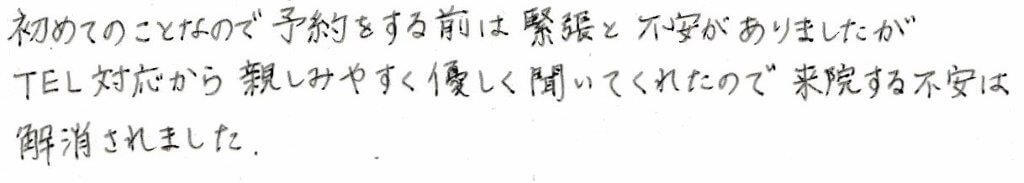 初めてのことなので予約をする前は緊張と不安がありましたが
TEL対応から親しみやすく優しく聞いてくれたので来院する不安は
解消されました.